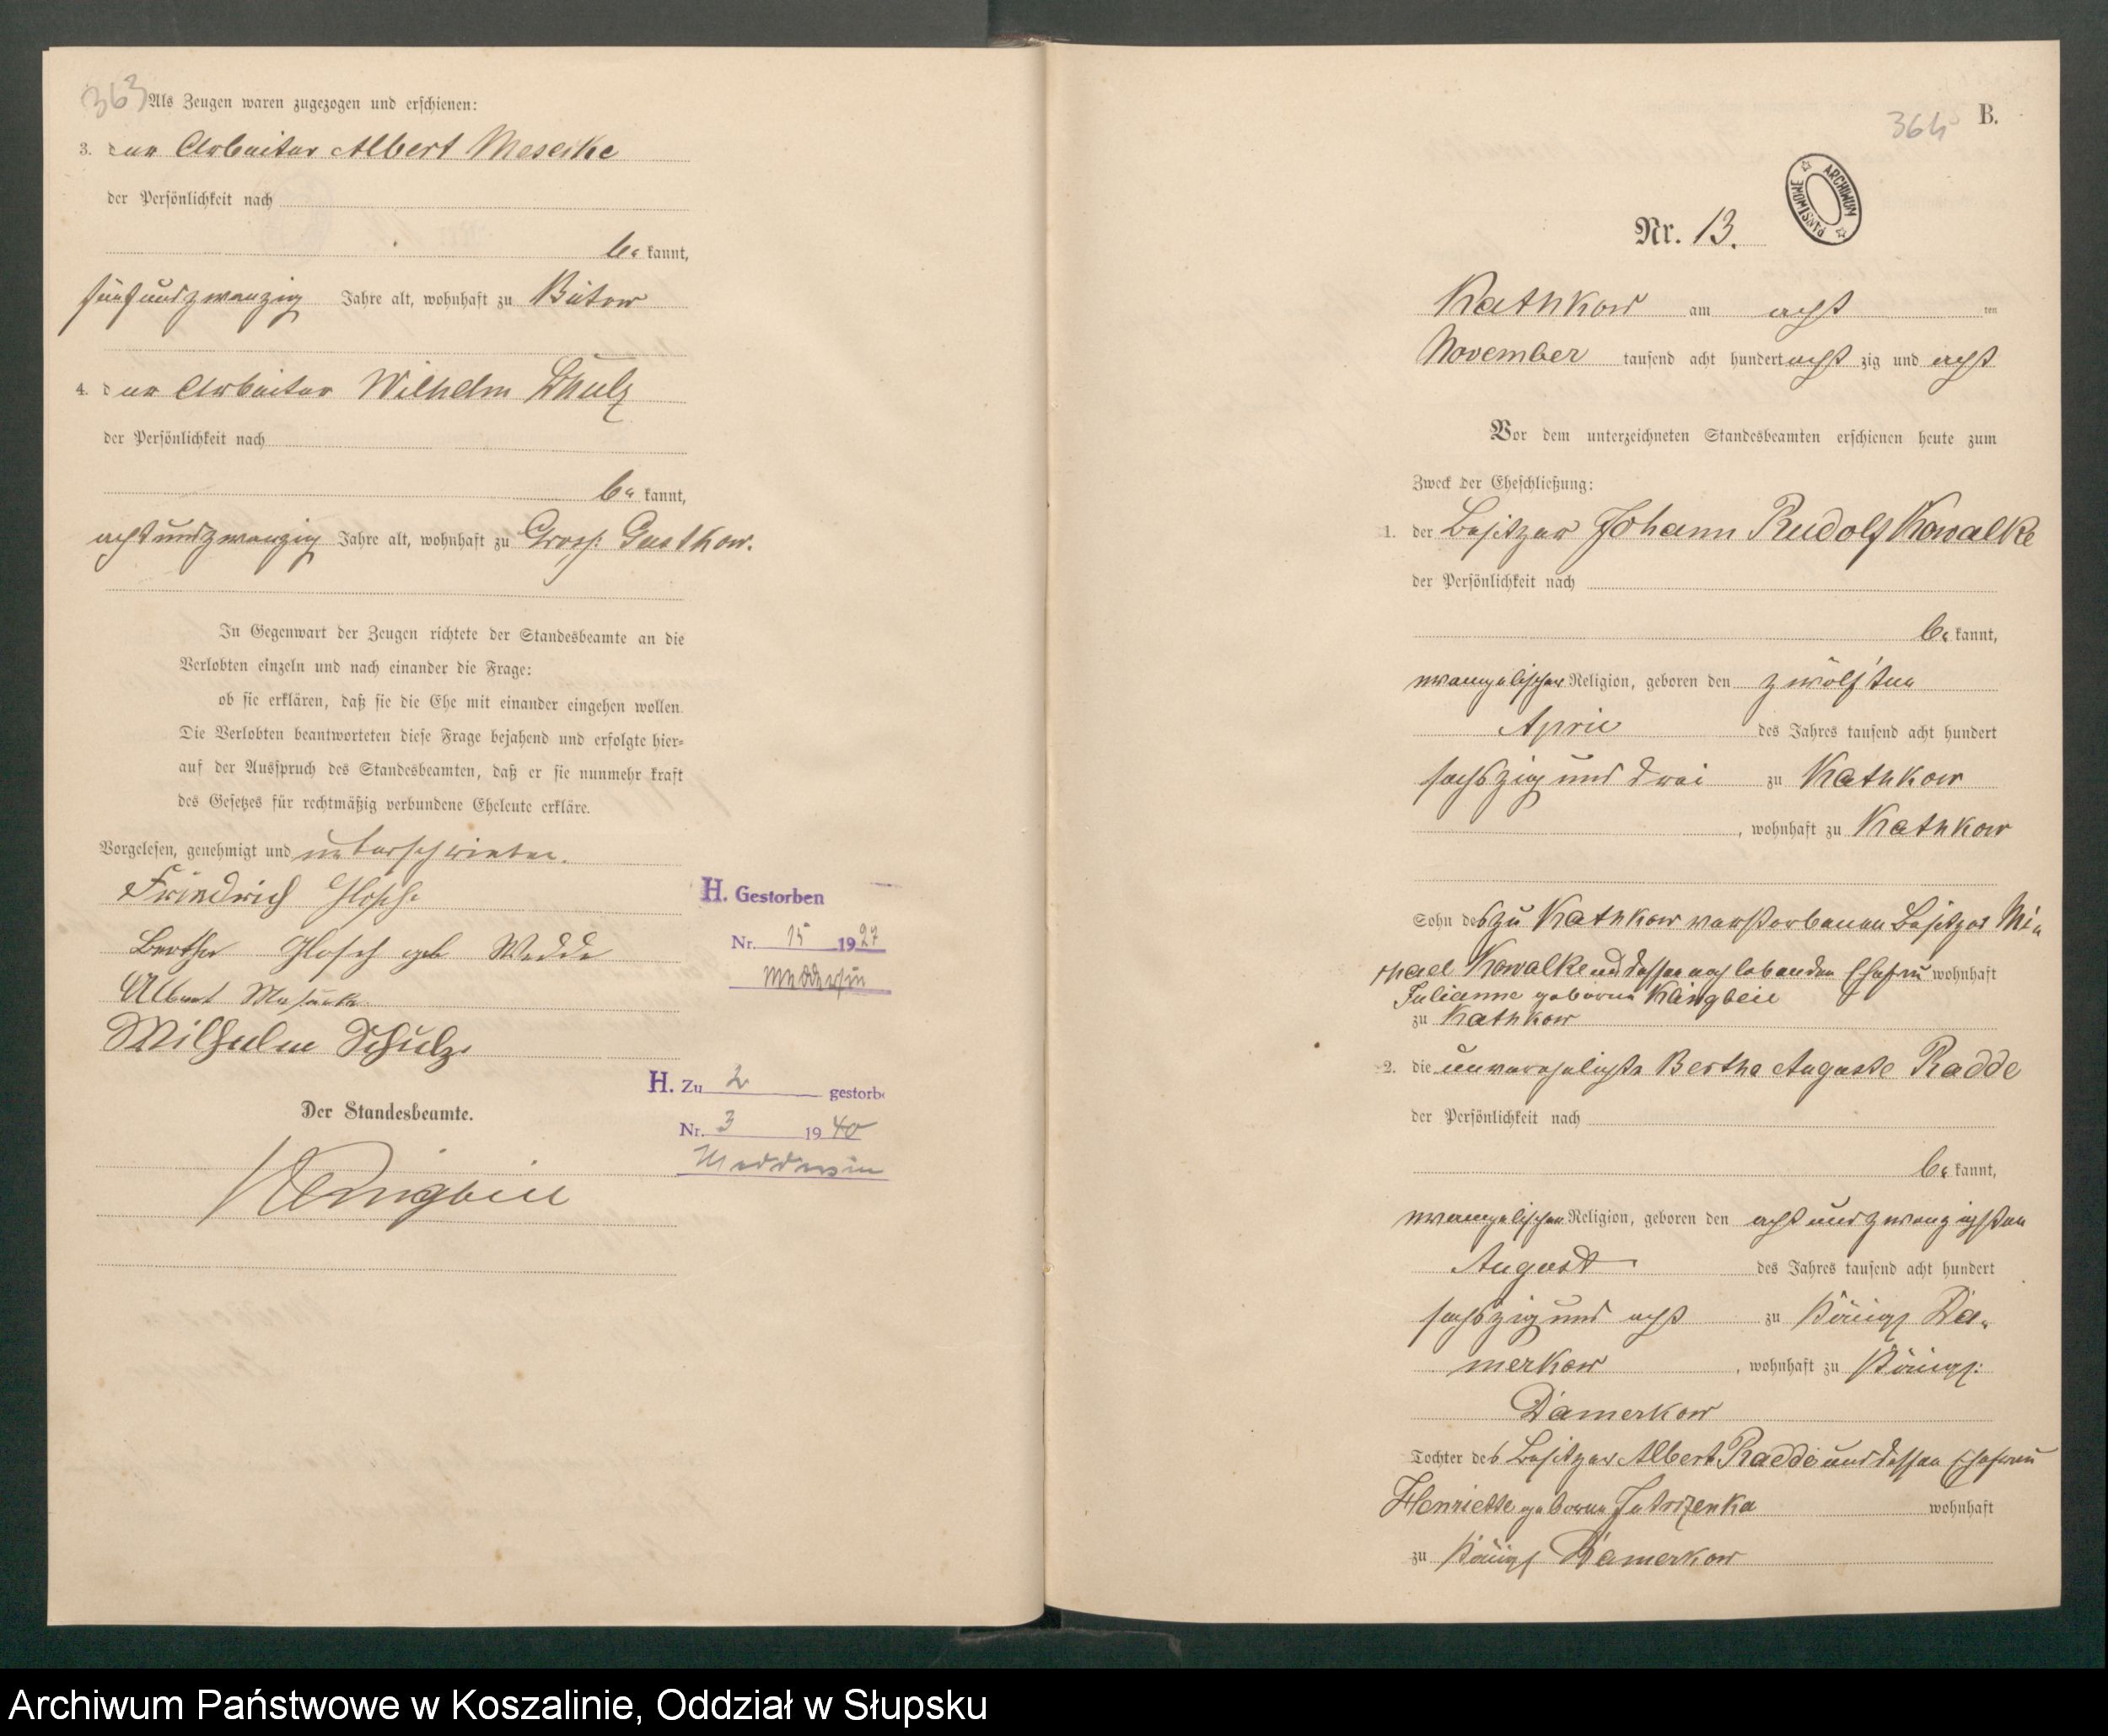 363
Als Zeugen waren zugezogen und erschienen:
3. der Arbeiter Albert Meseike
der Persönlichkeit nach
be kannt,
fünfundzwanzig Jahre alt, wohnhaft zu Bütow
4. der Arbeiter Wilhelm Schulz
der Persönlichkeit nach
be kannt,
achtundzwanzig Jahre alt, wohnhaft zu Gross Gustkow.
In Gegenwart der Zeugen richtete der Standesbeamte an die
Verlobten einzeln und nach einander die Frage:
ob sie erklären, daß sie die Ehe mit einander eingehen wollen.
Die Verlobten beantworteten diese Frage bejahend und erfolgte hier=
auf der Ausspruch des Standesbeamten, daß er sie nunmehr kraft
des Gesetzes für rechtmäßig verbundene Eheleute erkläre.
Vorgelesen, genehmigt und unterschrieben.
Friedrich
Bertha geb Wedde
Albert
Wilhelm Schulz.
Der Standesbeamte.
H. Gestorben
Nr. 15 1927
Meddersin
H. Zu 2 gestorbe
Nr. 3 1940
Meddersin
364
B.
ARCHIWUM PAŃSTWOWE
Nr. 13.
Kathkow am acht ten
November tausend acht hundert acht zig und acht
Vor dem unterzeichneten Standesbeamten erschienen heute zum
Zweck der Eheschließung:
1. der Besitzer Johann Rudolf Kowalke
der Persönlichkeit nach
be kannt,
evangelischer Religion, geboren den zwölften
April des Jahres tausend acht hundert
sechszig und drei zu Kathkow
, wohnhaft zu Kathkow
Sohn des zu Kathkow verstorbenen Besitzer Mi=
chael Kowalke und dessen noch lebenden Ehefrau wohnhaft
Julianne geborne Kängbeil
zu Kathkow
2. die unverehelichte Bertha Auguste Radde
der Persönlichkeit nach
be kannt,
evangelischen Religion, geboren den acht und zwanzigsten
August des Jahres tausend acht hundert
sechszig und acht zu Königl Da=
merkow , wohnhaft zu Königl:
Damerkow
Tochter des Besitzer Albert Radde und dessen Ehefrau
Henriette geborne wohnhaft
zu Königl Damerkow
Archiwum Państwowe w Koszalinie, Oddział w Słupsku